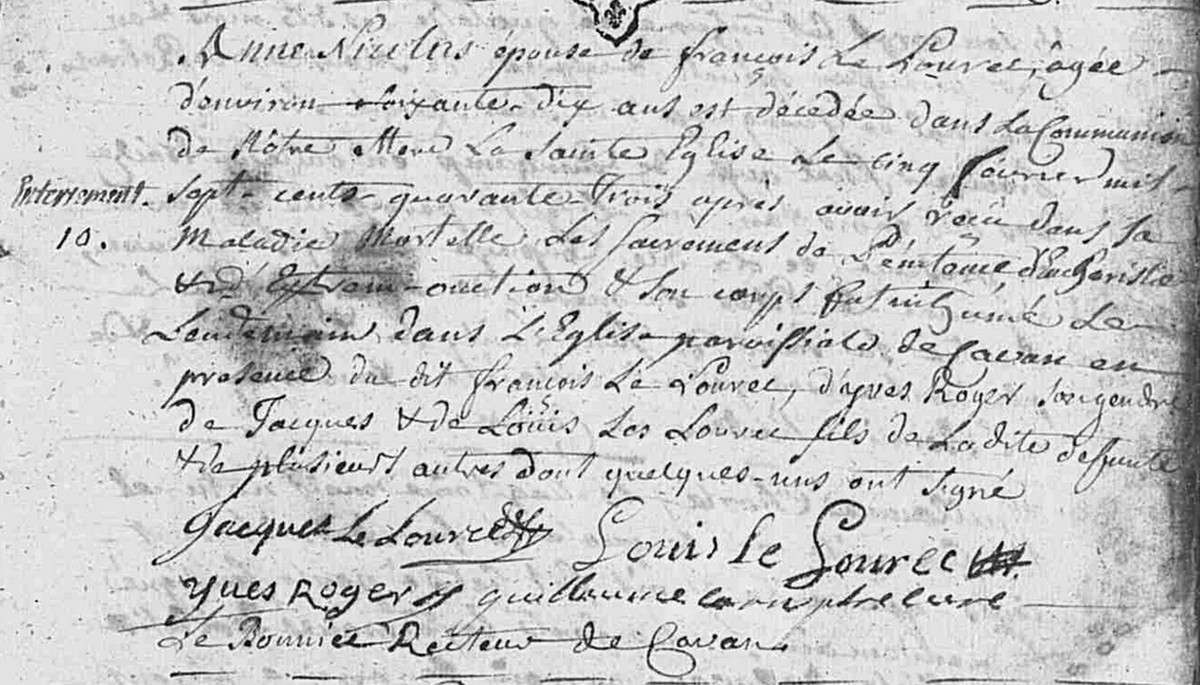 Anne Nicolas épouse de françois Le Lourec, âgée
d'environ Soixante-dix ans est décedée dans La Communion
de Nôtre Mere La Sainte Eglise Le cinq février mil-
Enterrement. Sept-cents-quarante-Trois après avoir reçu dans Sa
10. Maladie Mortelle Les Sacremens de Pénitence, d'Eucharistie
& d'Extrem-onction & Son corps fut inhumé Le
Lendemain dans L'Eglise paroissiale de Cavan en
presence du dit françois Le Lourec, d'yves Roger Son gendre
de Jacques & de Loüis Les Lourec fils de La dite defunte
& de plusieurs autres dont quelques-uns ont Signé
Jacques Le Lourec Louis le Lourec
yves Roger guillaume curé
Le Bonniec Recteur de Cavan.